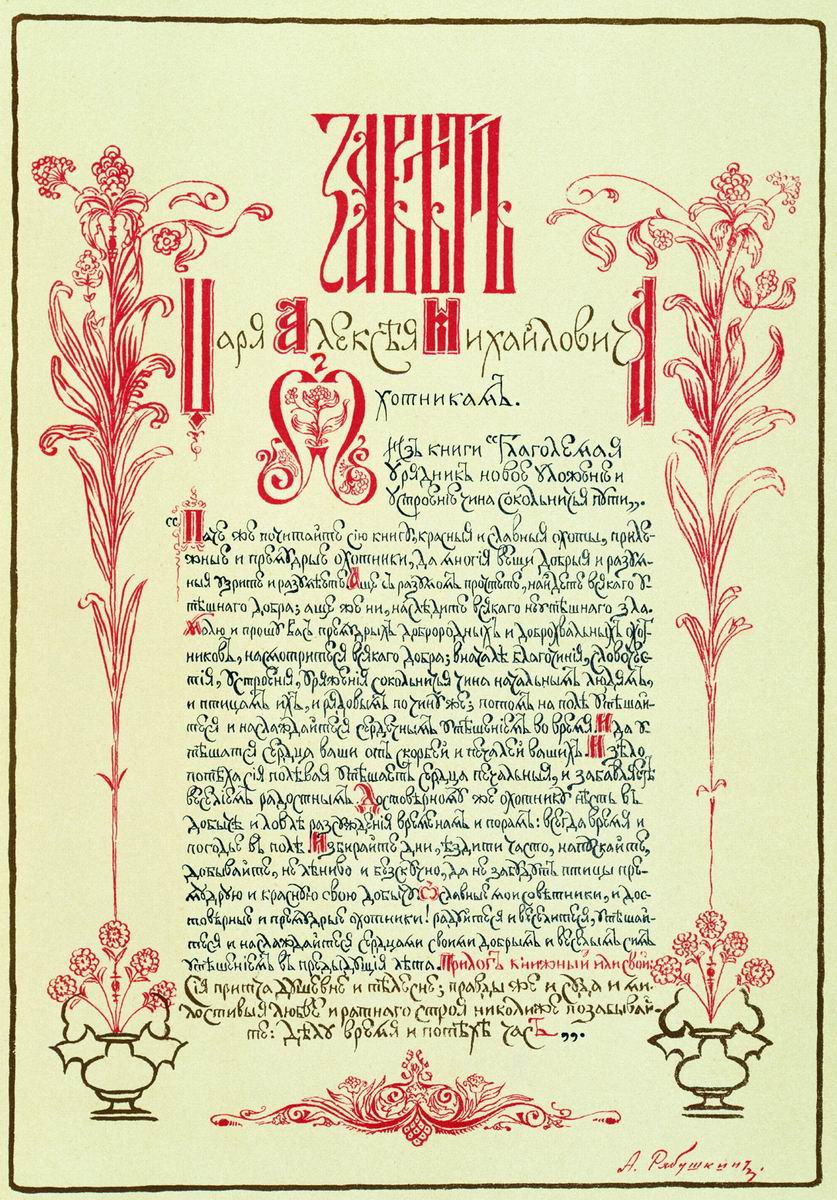 Завѣтъ
Царя Алексѣя Михайловича
Охотникамъ.
Изъ книги “Глаголемая
Урядникъ новое уложенiе и
устроенiе чина сокольничья пути„.
“Паче же почитайте сiю книгу, красныя и славныя охоты, приле-
жные и премудрые охотники, да многiя вещи добрыя и разум-
ныя узрите и разумѣете. Аще съ разумомъ прочтете, найдете всякаго у-
тѣшнаго добра; аще же ни, наслѣдите всякаго неутѣшнаго зла.
Молю и прошу васъ премудрыхъ доброродныхъ и доброхвальныхъ охот-
никовъ, насмотритеся всякаго добра; вначалѣ благочинiя, славочес-
тiя, устроенiя, уряженiя сокольничья чина начальнымъ людямъ,
и птицамъ ихъ, и рядовымъ по чину же; потомъ на полѣ утѣшай-
теся и наслаждайтеся сердечнымъ утѣшенiемъ во время. И да у-
тѣшатся сердца ваши отъ скорбей и печалей вашихъ. И зѣло
потѣха сiя полевая утѣшаетъ сердца печальныя, и забавляетъ
веселiемъ радостнымъ. Достовѣрному же охотнику нѣсть въ
добычѣ и ловлѣ разсужденiя временамъ и порамъ: всегда время и
погодье въ полѣ. Избирайте дни, ѣздите часто, напускайте,
добывайте, не лѣниво и безскучно, да не забудутъ птицы пре-
мудрую и красную свою добычу. О славные мои совѣтники, и дос-
товѣрные и премудрые охотники! радуйтеся и веселитеся, утѣшай-
теся и наслаждайтеся сердцами своими добрымъ и веселымъ симъ
утѣшенiемъ въ предыдущiя лѣта. Прилогъ книжный или свой:
Сiя притча душевне и тѣлесне; правды же и суда и ми-
лостивыя любве и ратнаго строя николиже позабывай-
те: дѣлу время и потѣхѣ часъ„.
А. Рябушкинъ.